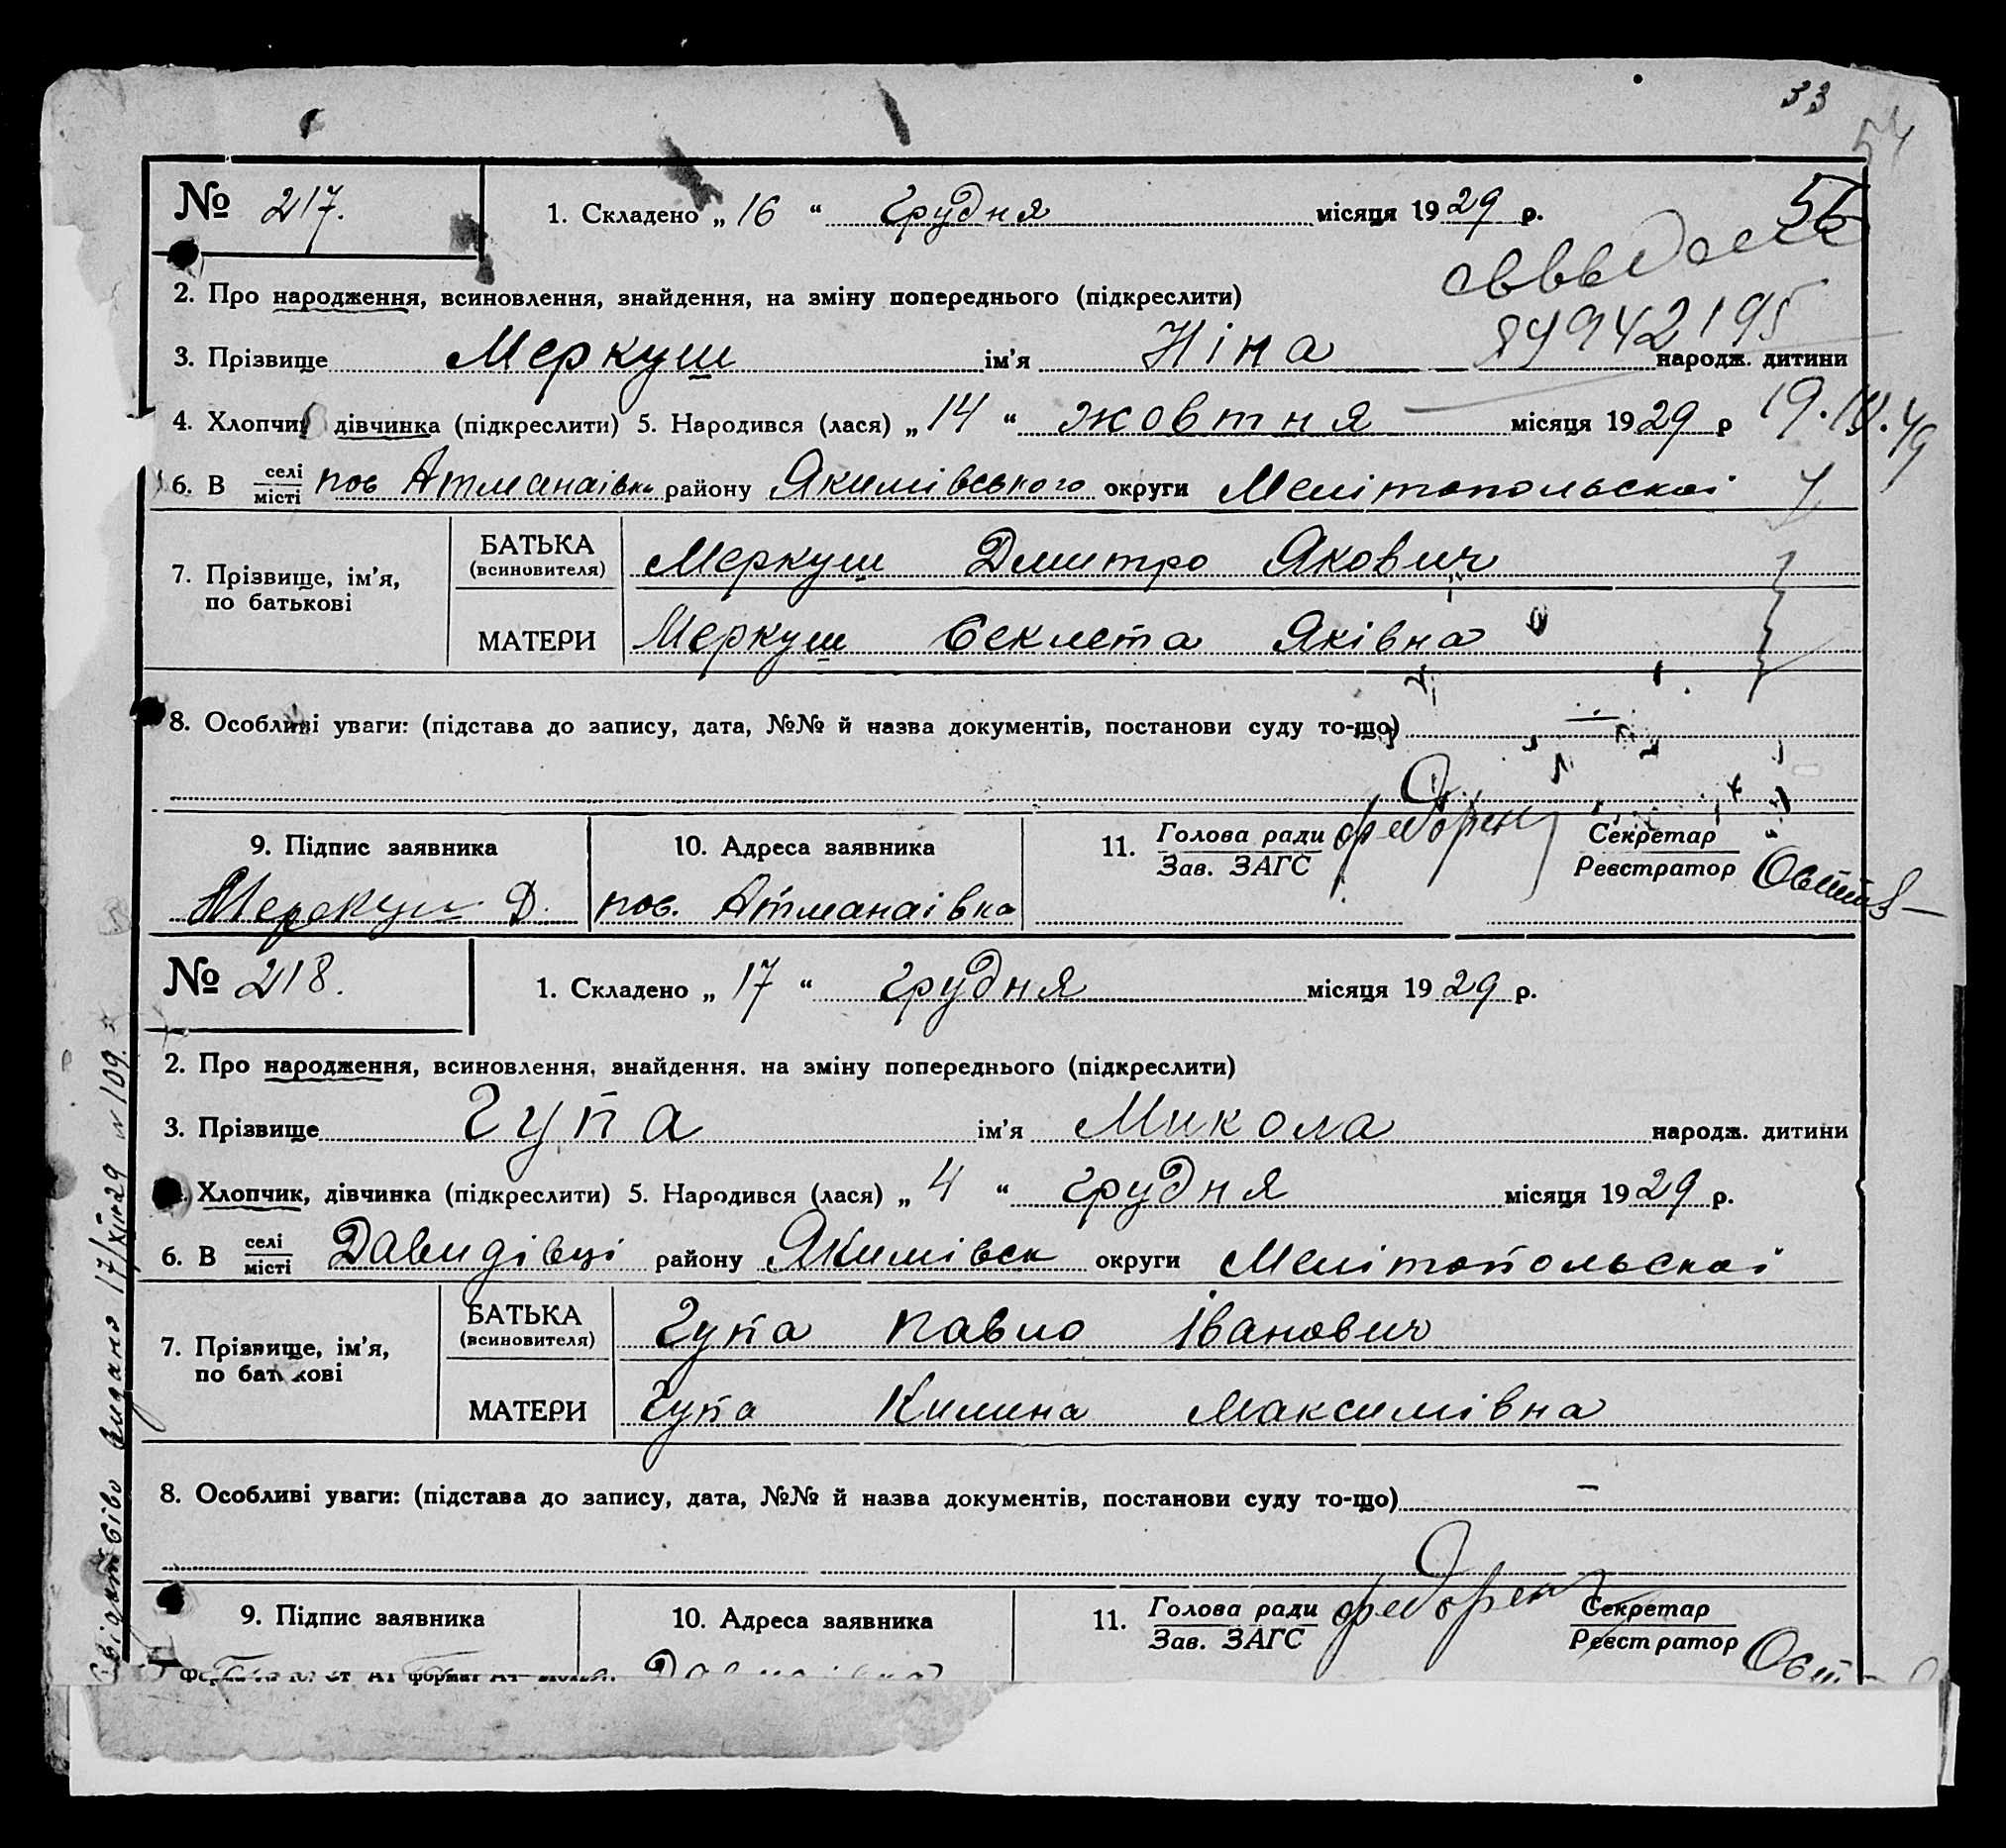 33
54
55
№ 217. 1. Складено „ 16 “ грудня місяця 1929 р.
2. Про народження, всиновлення, знайдення, на зміну попереднього (підкреслити)
3. Прізвище Меркуш ім’я Ніна народж. дитини
4. Хлопчик дівчинка (підкреслити) 5. Народився (лася) „ 14 “ жовтня місяця 1929 р
6. В селі/місті пов Атманаівка району Якимівського округи Мелітопольскоі
7. Прізвище, ім’я, по батькові
БАТЬКА (всиновителя) Меркуш Дмитро Якович
МАТЕРИ Меркуш Секлета Яківна
8. Особливі уваги: (підстава до запису, дата, №№ й назва документів, постанови суду то-що)
9. Підпис заявника 10. Адреса заявника 11. Голова ради/Зав. ЗАГС Секретар/Реєстратор
Меркуш Д. пов. Атманаівка
№ 218. 1. Складено „ 17 “ грудня місяця 1929 р.
2. Про народження, всиновлення, знайдення, на зміну попереднього (підкреслити)
3. Прізвище Гупа ім’я Микола народж. дитини
Хлопчик, дівчинка (підкреслити) 5. Народився (лася) „ 4 “ грудня місяця 1929 р.
6. В селі/місті Давидівці району Якимівск округи Мелітопольскоі
7. Прізвище, ім’я, по батькові
БАТЬКА (всиновителя) Гупа Павло Іванович
МАТЕРИ Гупа Килина Максимівна
8. Особливі уваги: (підстава до запису, дата, №№ й назва документів, постанови суду то-що) –
9. Підпис заявника 10. Адреса заявника 11. Голова ради/Зав. ЗАГС Секретар/Реєстратор
видано 17/XII-29 N 109